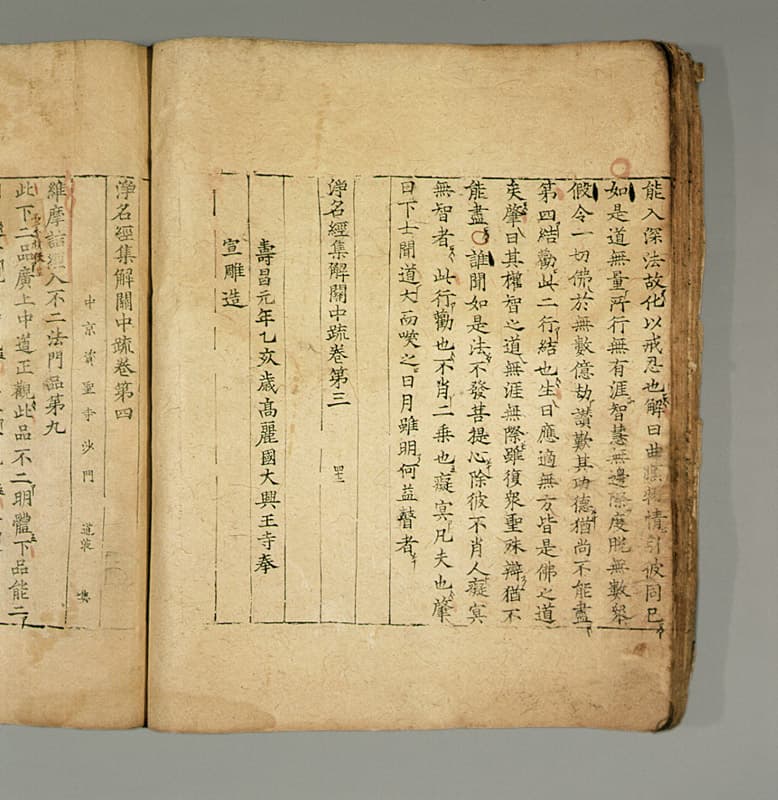 能入深法故化以戒忍也解曰曲順物情引彼同已
如是道無量所行無有涯智慧無邊際度脫無數眾
假令一切佛於無數億劫讚歎其功德猶尚不能盡
第四結勸此二行結也生曰應適無方皆是佛之道
矣肇曰其權智之道無涯無際雖復眾聖殊辯猶不
能盡誰聞如是法不發菩提心除彼不肖人癡冥
無智者此行勸也不肖二乘也癡冥凡夫也肇
曰下士聞道大而唉之日月雖明何益瞽者
淨名經集解關中疏卷第三
壽昌元年乙亥歲高麗國大興王寺奉
宣雕造
淨名經集解關中疏卷第四
中京資聖寺沙門 道液 集
維摩詰經入不二法門品第九
此下二品廣上中道正觀此品不二明體下品能二